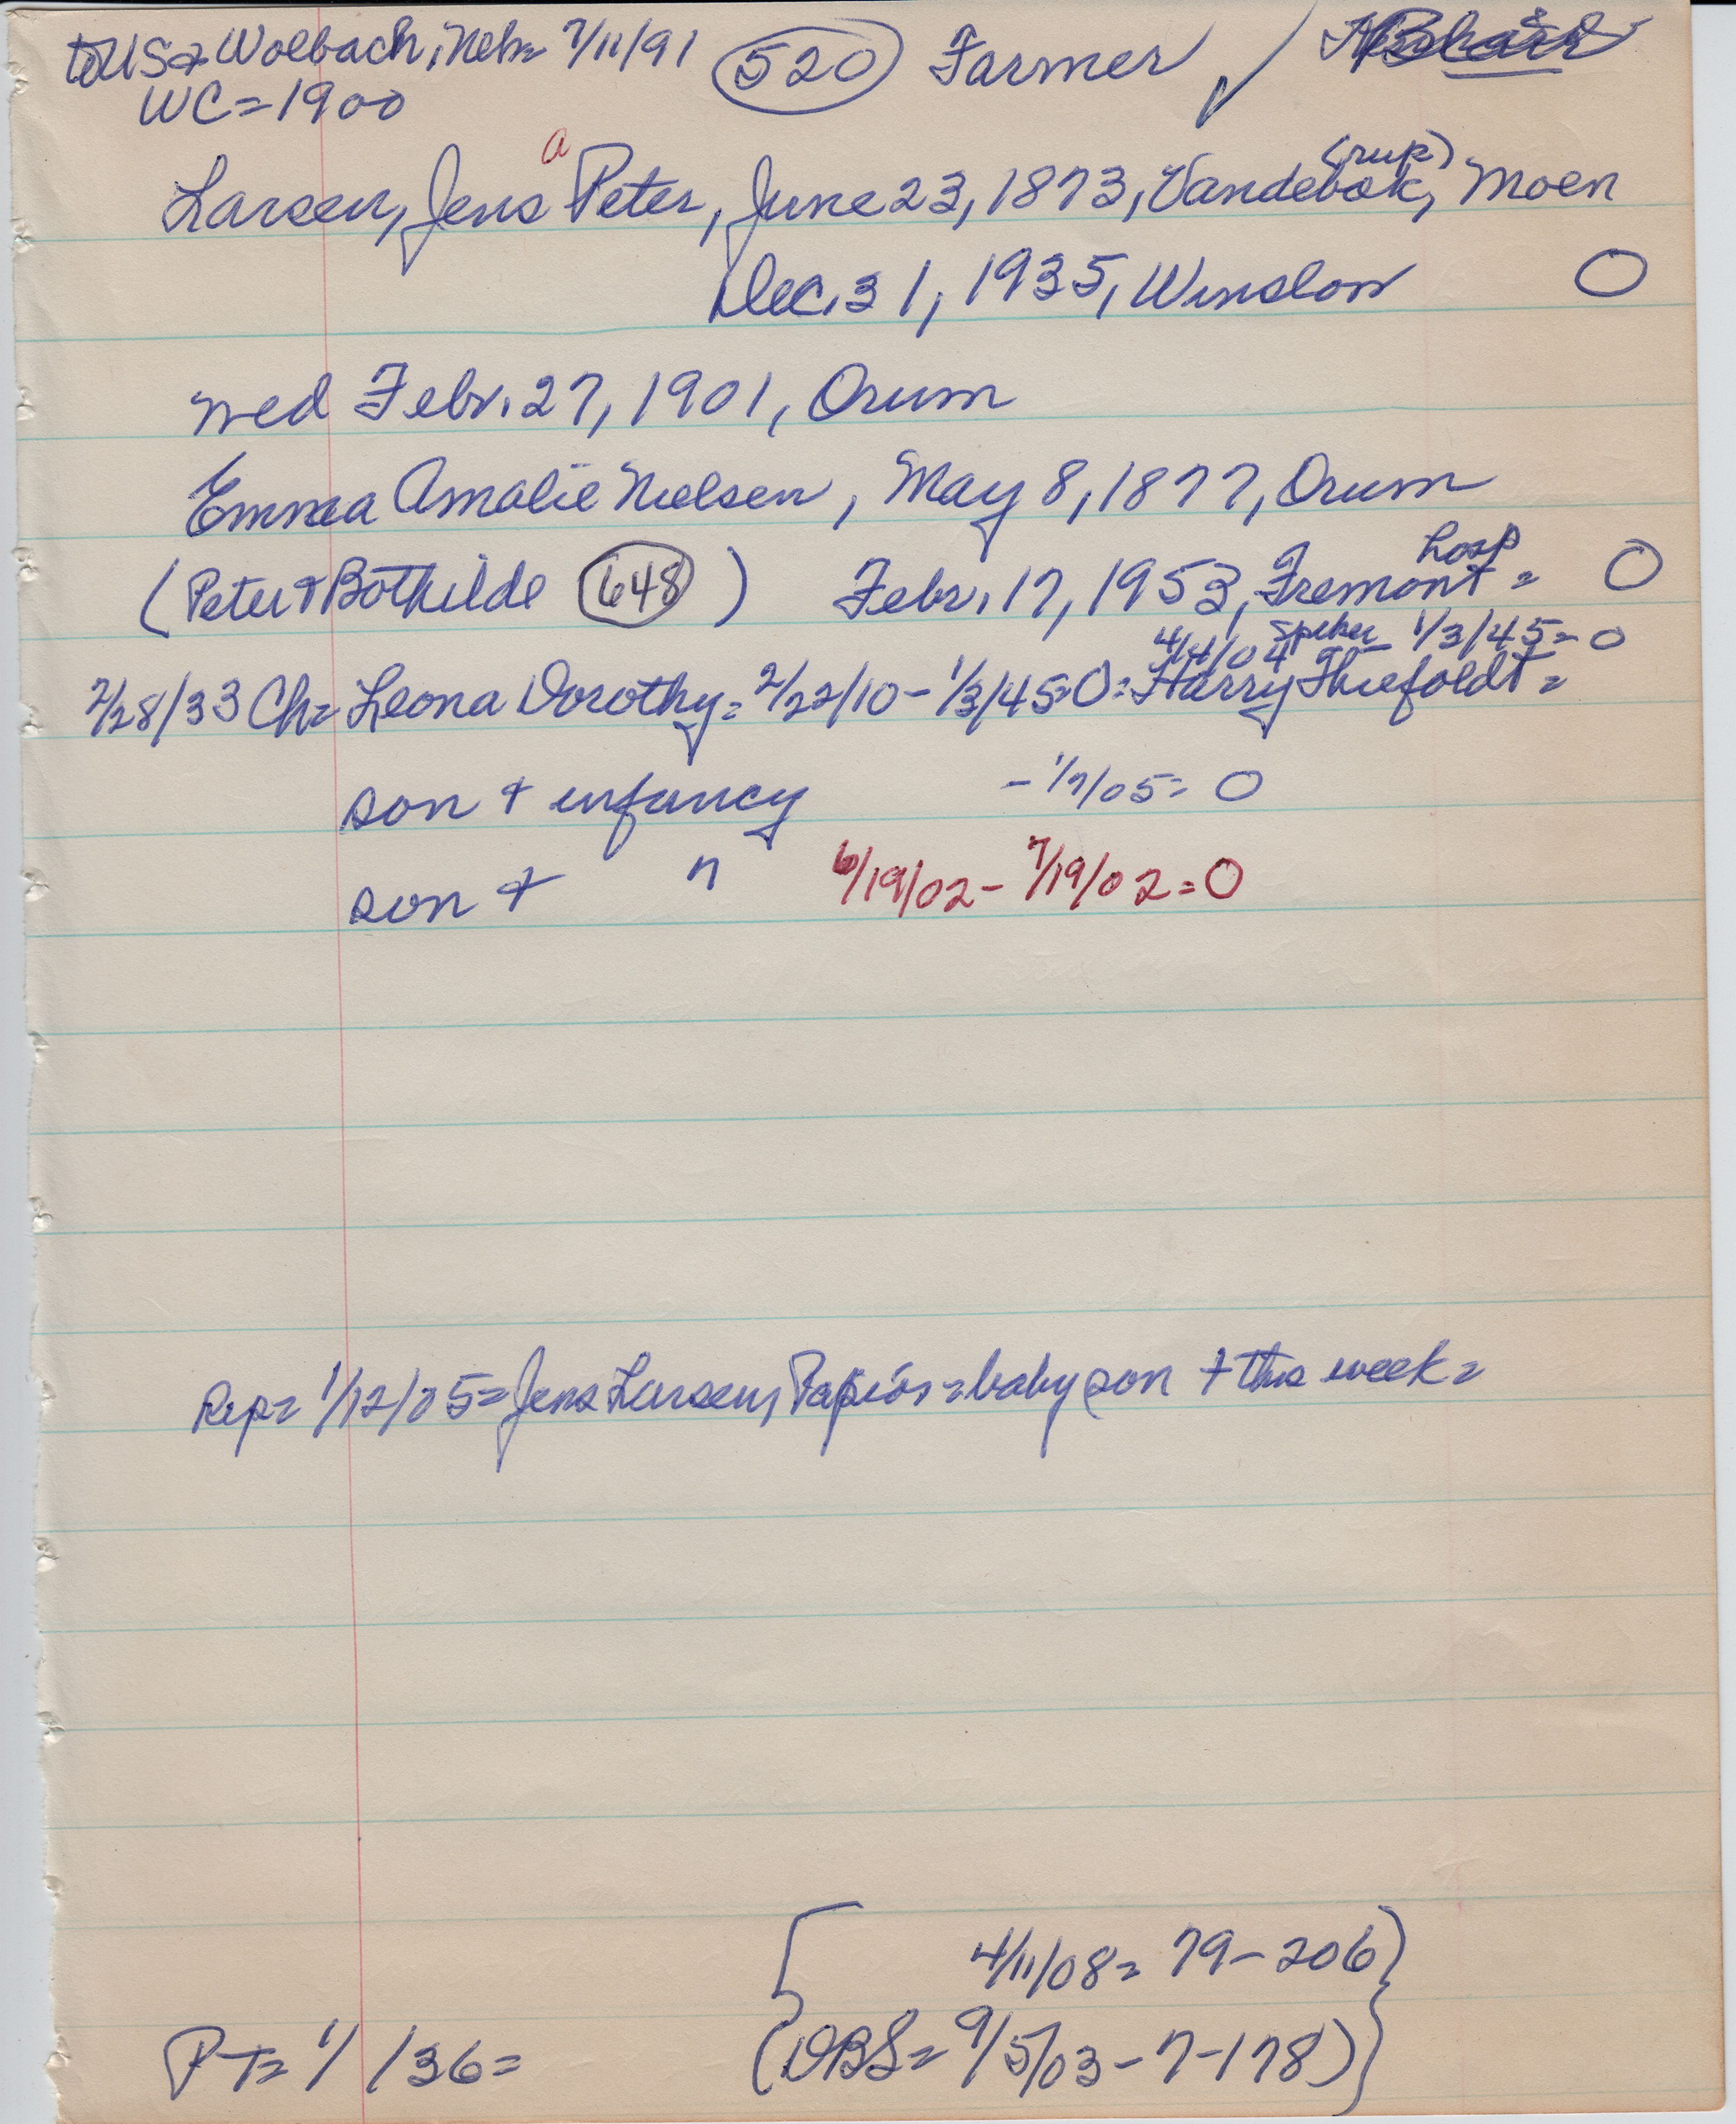 to US = Wolbach, Neb = 7/11/91 (520) Farmer ✓
WC = 1900
a (rup)
Larsen, Jens Peter, June 23, 1873, Vandebak, Moen
Dec. 31, 1935, Winslow O
wed Febr. 27, 1901, Orum
Emma Amalie Nielsen, May 8, 1877, Orum
hosp
(Peter & Bothilde (648)) Febr. 17, 1953, Fremont = O
4/4/04 1/3/45 = O
2/28/33 Ch = Leona Dorothy = 2/22/10 - 1/3/45 = O = Harry Thiefoldt =
son + infancy - 1/7/05 = O
son + " 6/19/02 - 7/19/02 = O
Rep = 1/12/05 = Jens Larsen, = baby son + this week =
4/11/08 = 79-206
PT = 1/ /36 = (DBS = 9/5/03 - 7-178)